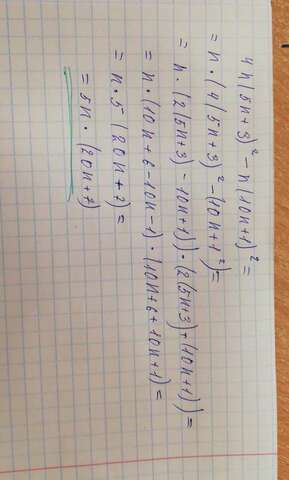 4n(5n+3)² - n(10n+1)² =
= n·(4(5n+3)² - (10n+1²) =
= n·(2(5n+3) - 10n+1))·(2(5n+3)+(10n+1)) =
= n·(10n+6-10n-1)·(10n+6+10n+1) =
= n·5(20n+7) =
= 5n·(20n+7)